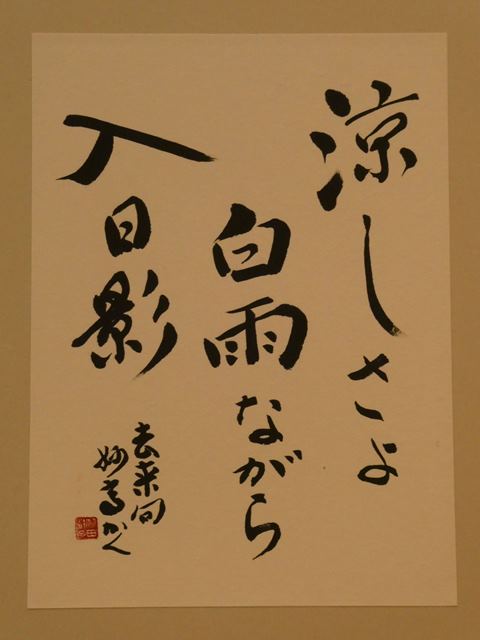 涼しさよ
白雨ながら
入日影
去来句
妙高かく